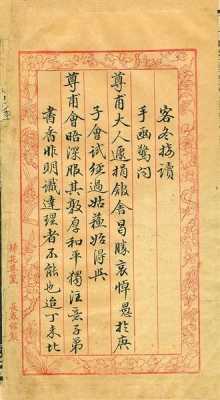 客冬接讀
手函驚聞
尊甫大人遽捐館舍曷勝哀悼愚於庚
子會試經過姑蘇始得與
尊甫會晤深服其敦厚和平獨注意子弟
書香非明識達理者不能也追丁未北